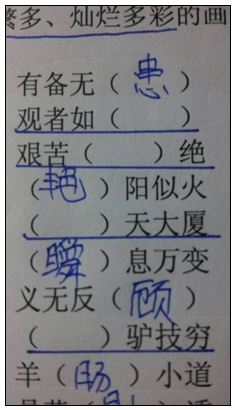 繁多、灿烂多彩的画
有备无（患）
观者如（　　）
艰苦（　　）绝
（艳）阳似火
（　　）天大厦
（瞬）息万变
义无反（顾）
（　　）驴技穷
羊（肠）小道